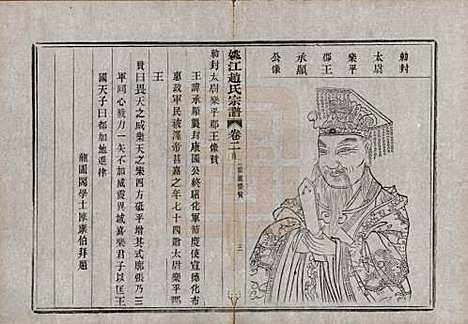 勅封
太尉
樂平
郡王
承顯
公像
姚江趙氏宗譜 卷二
三
勅封太尉樂平郡王像贊
王諱承顯襲封康國公終順化軍節度使宣德化布
惠政軍民被澤帝甚嘉之年七十四贈太尉樂平郡
王
贊曰畏天之威樂天之宋四方砥平增其式廓張乃三
軍同心戮力一矢不加威震異域嘉樂君子以匡王
國天子曰都加地進律
龍圖閣學士陳康伯拜題